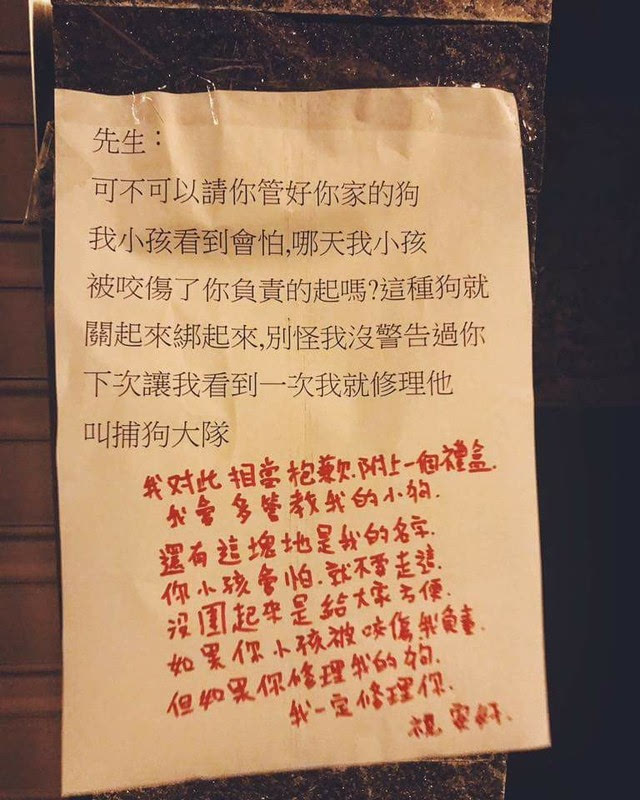 先生：
可不可以請你管好你家的狗
我小孩看到會怕,哪天我小孩
被咬傷了你負責的起嗎?這種狗就
關起來綁起來,別怪我沒警告過你
下次讓我看到一次我就修理他
叫捕狗大隊
我对此相當抱歉.附上一個禮盒.
我會多管教我的小狗.
還有這塊地是我的名字.
你小孩會怕.就不要走這.
沒圍起來是給大家方便.
如果你小孩被咬傷.我負責.
但如果你修理我的狗.
我一定修理你.
祝 安好.